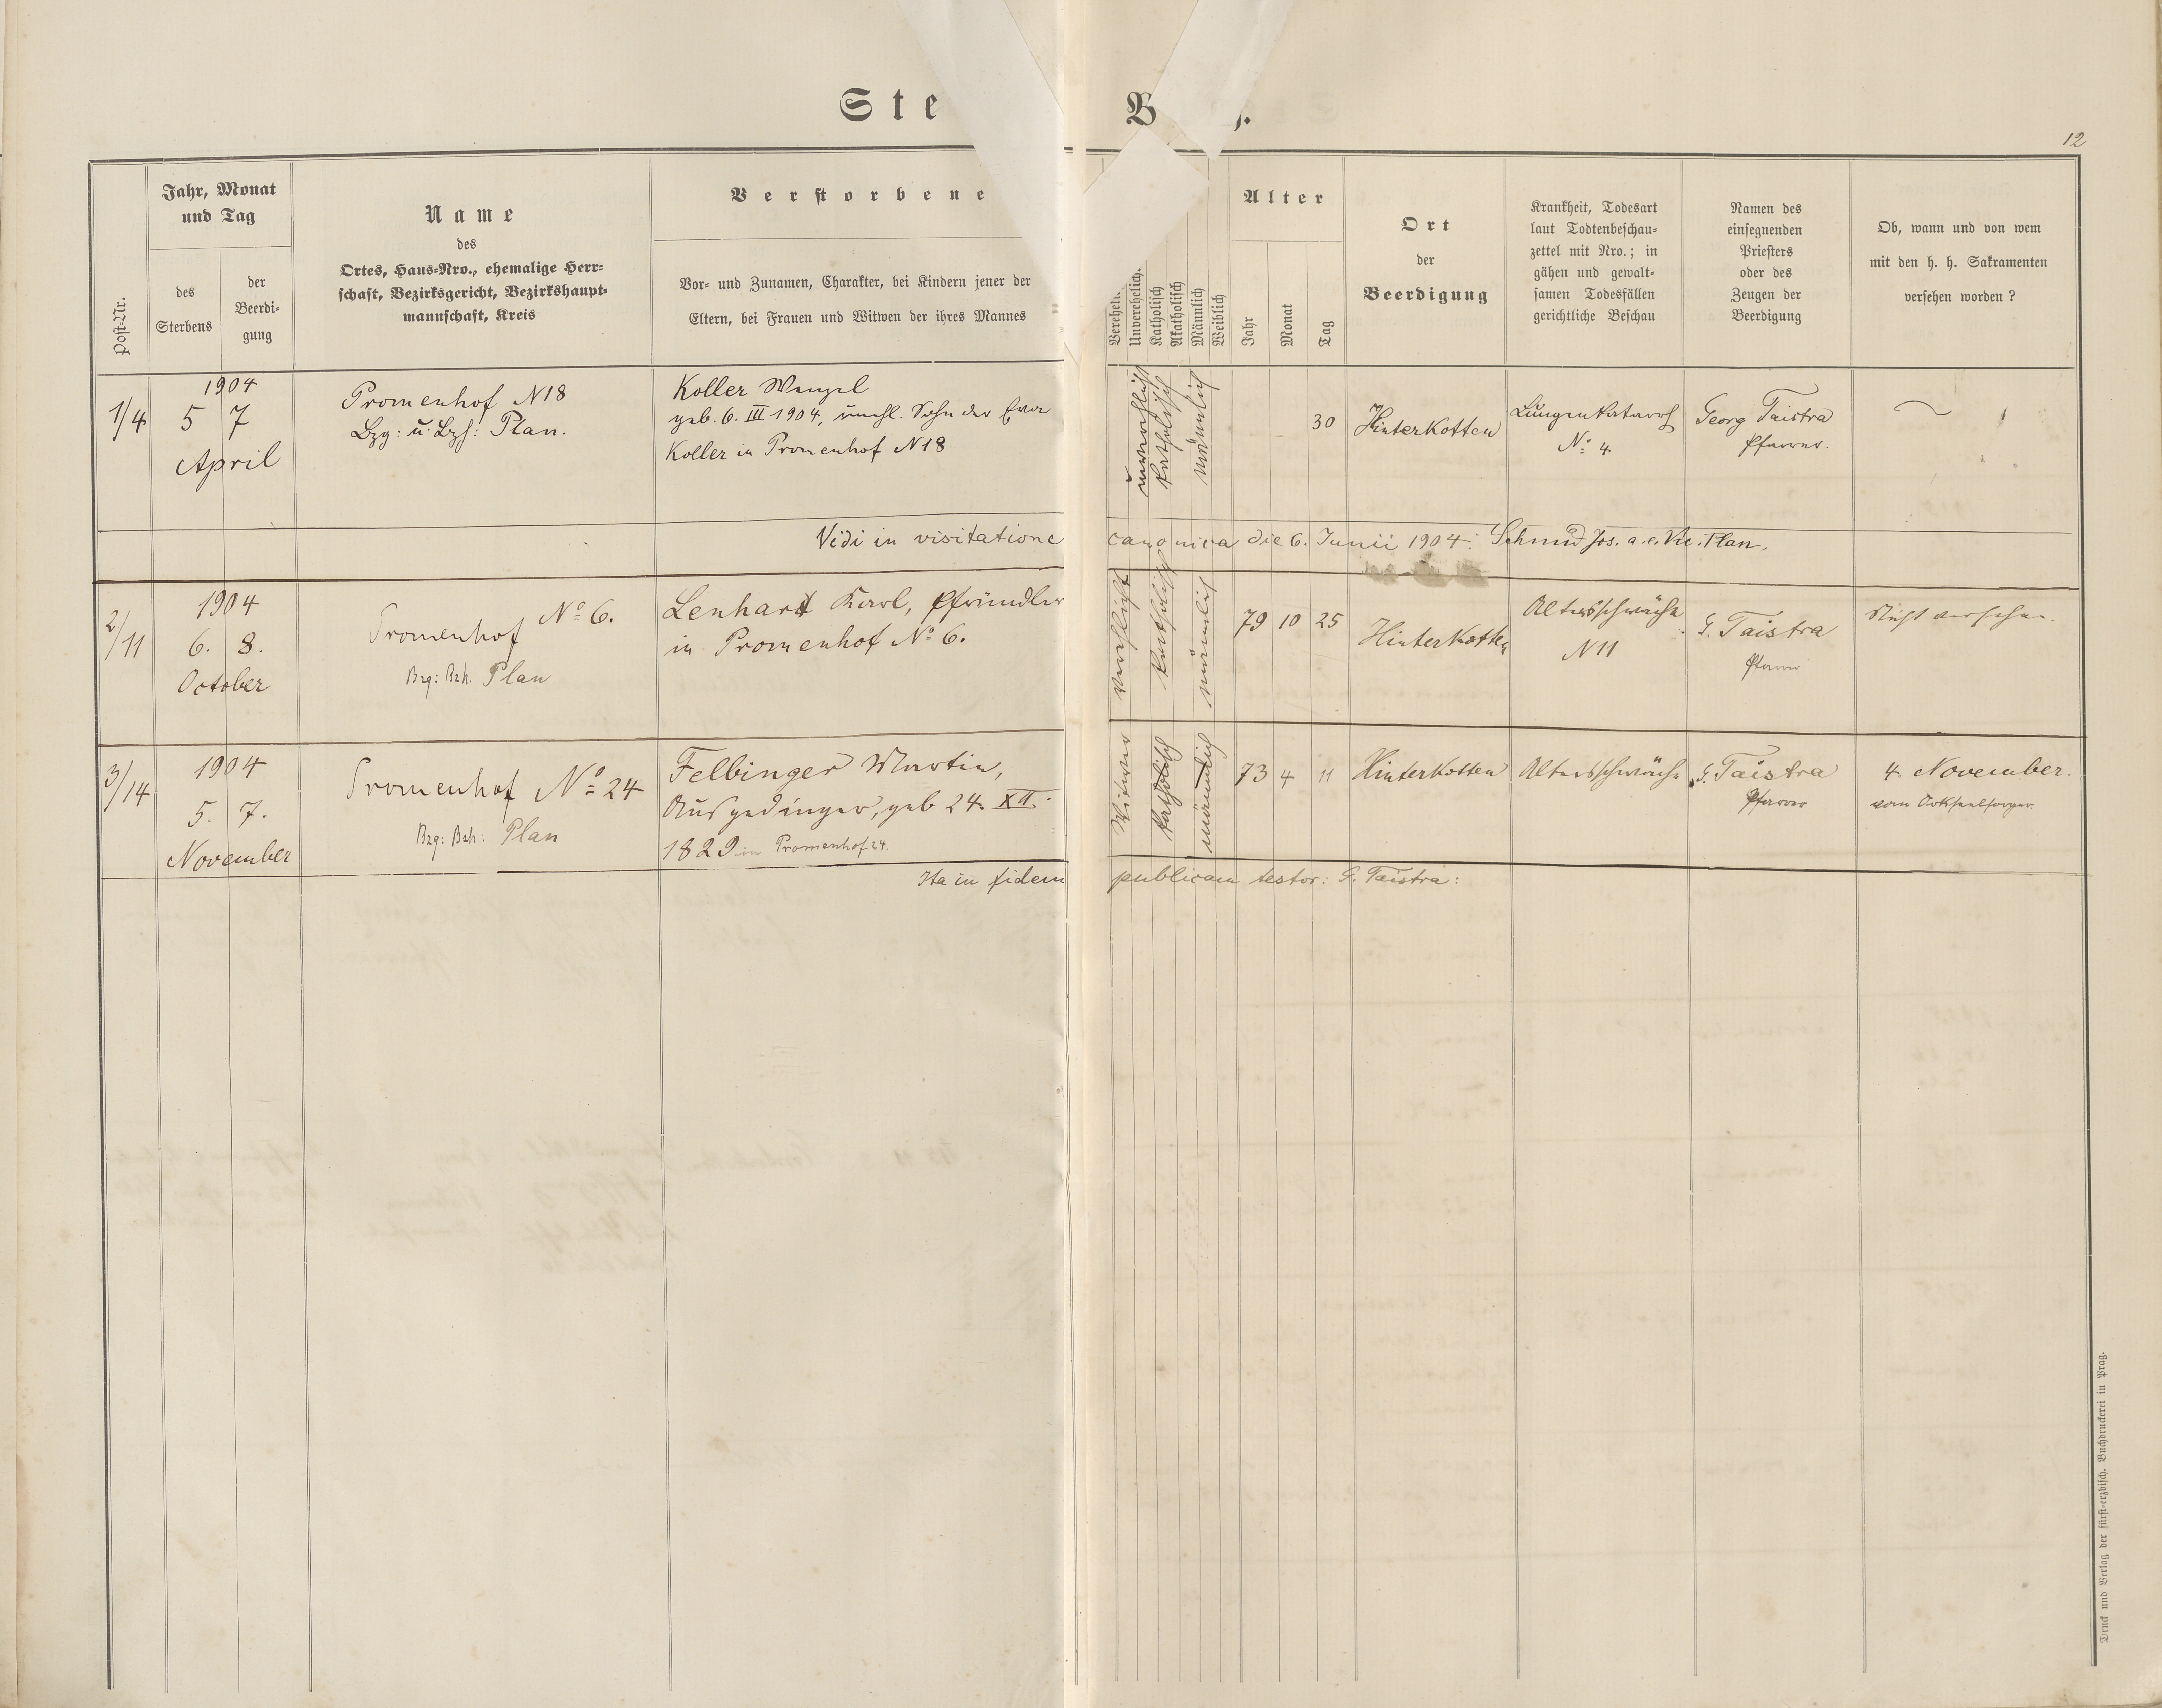 Ste B r.
12
Post-Nr.
Jahr, Monat
und Tag
des
Sterbens
der
Beerdi-
gung
Name
des
Ortes, Haus-Nro., ehemalige Herr-
schaft, Bezirksgericht, Bezirkshaupt-
mannschaft, Kreis
Verstorbene
Vor- und Zunamen, Charakter, bei Kindern jener der
Eltern, bei Frauen und Witwen der ihres Mannes
Unverehelich.
Katholisch
Akatholisch
Männlich
Weiblich
Alter
Jahr
Monat
Tag
Ort
der
Beerdigung
Krankheit, Todesart
laut Todtenbeschau-
zettel mit Nro.; in
gähen und gewalt-
samen Todesfällen
gerichtliche Beschau
Namen des
einsegnenden
Priesters
oder des
Zeugen der
Beerdigung
Ob, wann und von wem
mit den h. h. Sakramenten
versehen worden?
1/4
1904
5 7
April
Promenhof N 18
Bzg: u: Bzh: Plan.
Koller Wenzel
geb. 6. III 1904, unehl. Sohn der
Koller in Promenhof N 18
unverehlicht
katholisch
männlich
30
Hinterkotten
Lungenkatarrh
No 4
Georg Taistra
Pfarrer.
Vidi in visitatione canonica die 6. Junii 1904: Schmid Jos. a. e. Vic. Plan.
2/11
1904
6. 8.
October
Promenhof No 6.
Bzg: Bzh. Plan
Lenhard Karl, Pfründler
in Promenhof No 6.
verehlicht
katholisch
männlich
79 10 25
Hinterkotten
Altersschwäche
N 11
G. Taistra
Pfarrer
Nicht versehen
3/14
1904
5. 7.
November
Promenhof No 24
Bzg: Bzh: Plan
Felbinger Martin,
Ausgedinger, geb 24. XII.
1829 in Promenhof 24.
Witwer
katholisch
männlich
73 4 11
Hinterkotten
Altersschwäche
G. Taistra
Pfarrer
4. November.
vom Ortsseelsorger.
Ita in fidem publicam testor: G. Taistra:
Druck und Verlag der fürst-erzbisch. Buchdruckerei in Prag.